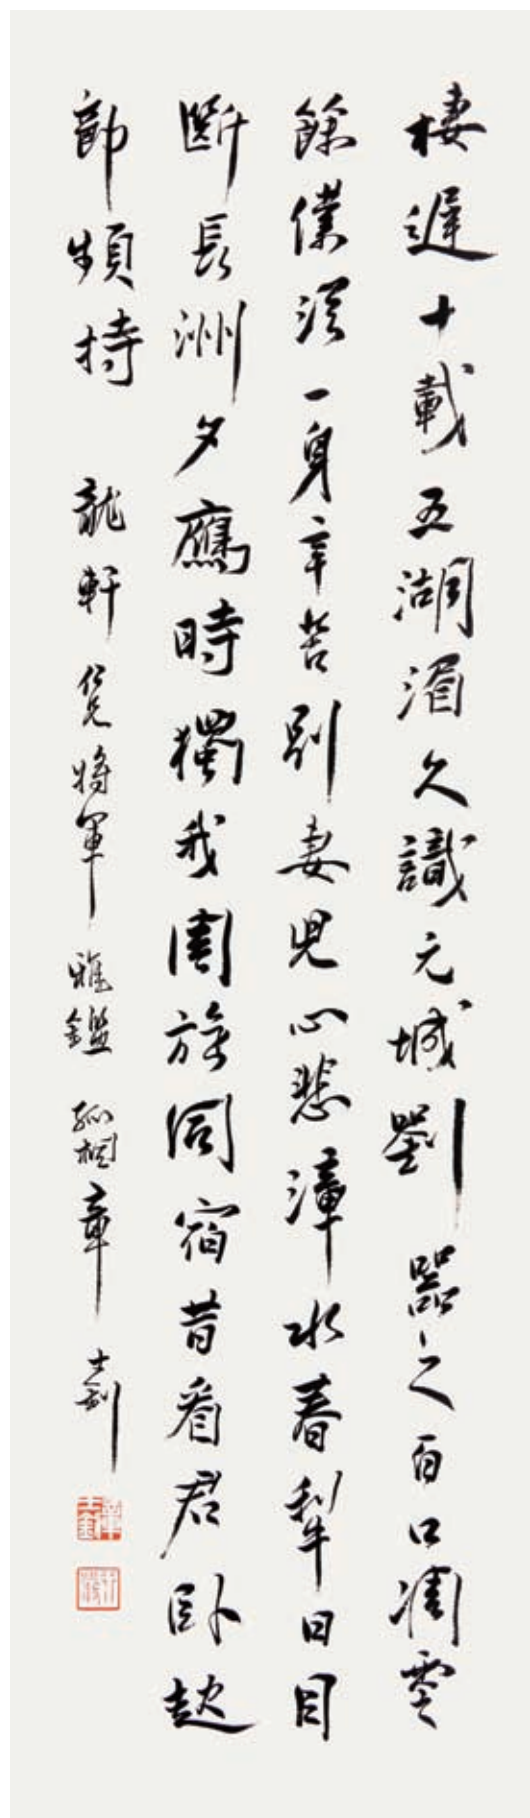 棲遲十載五湖湄久識元城劉器之百口凋零
餘僕從一身辛苦別妻兒心悲漳水春犁日目
斷長洲夕雁時獨我周旋同宿昔看君臥起
節頻持 龍軒仁兄將軍雅鑑 孤桐章士釗